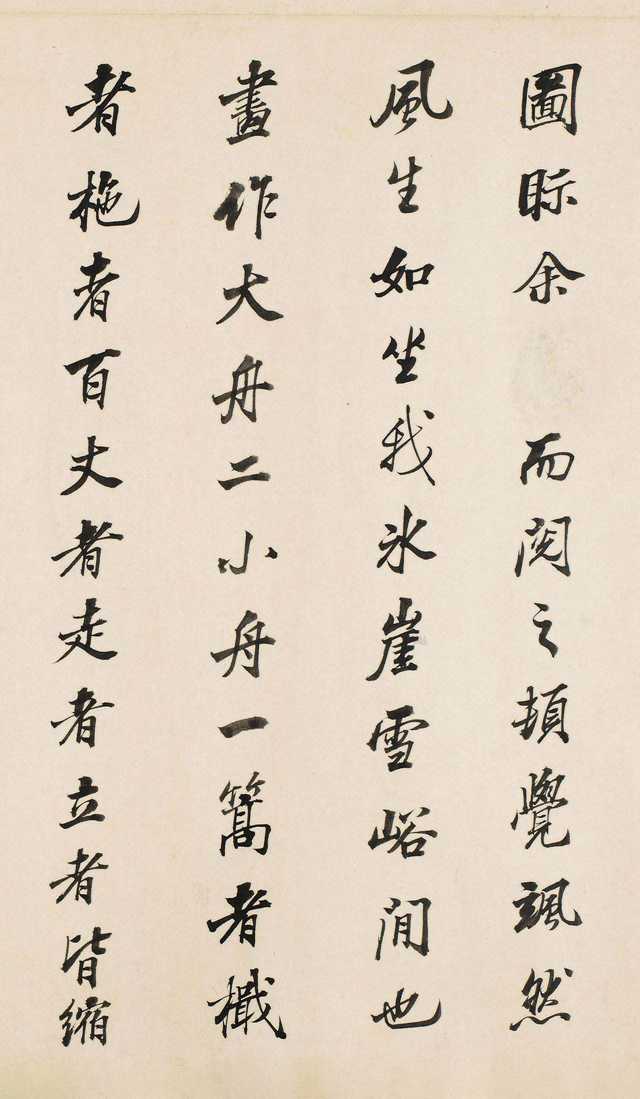 圖眎余 而閱之頓覺颯然
風生如坐我冰崖雪峪閒也
畫作大舟二小舟一篙者檝
者柂者百丈者走者立者皆縮